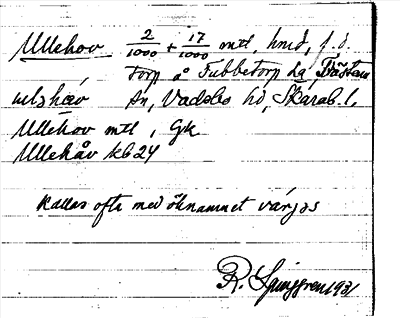 Ullehov 2/1000 + 17/1000 mtl, hmd, f.d.
torp å Fubbetorp hg, Bäckan
ulshav An, Vadsbo hd, Skarab. l.
Ullehov mtl, Gk
Ullehåv kb 24
Kallas ofta med öknamnet várjas
R. Ljunggren 1931